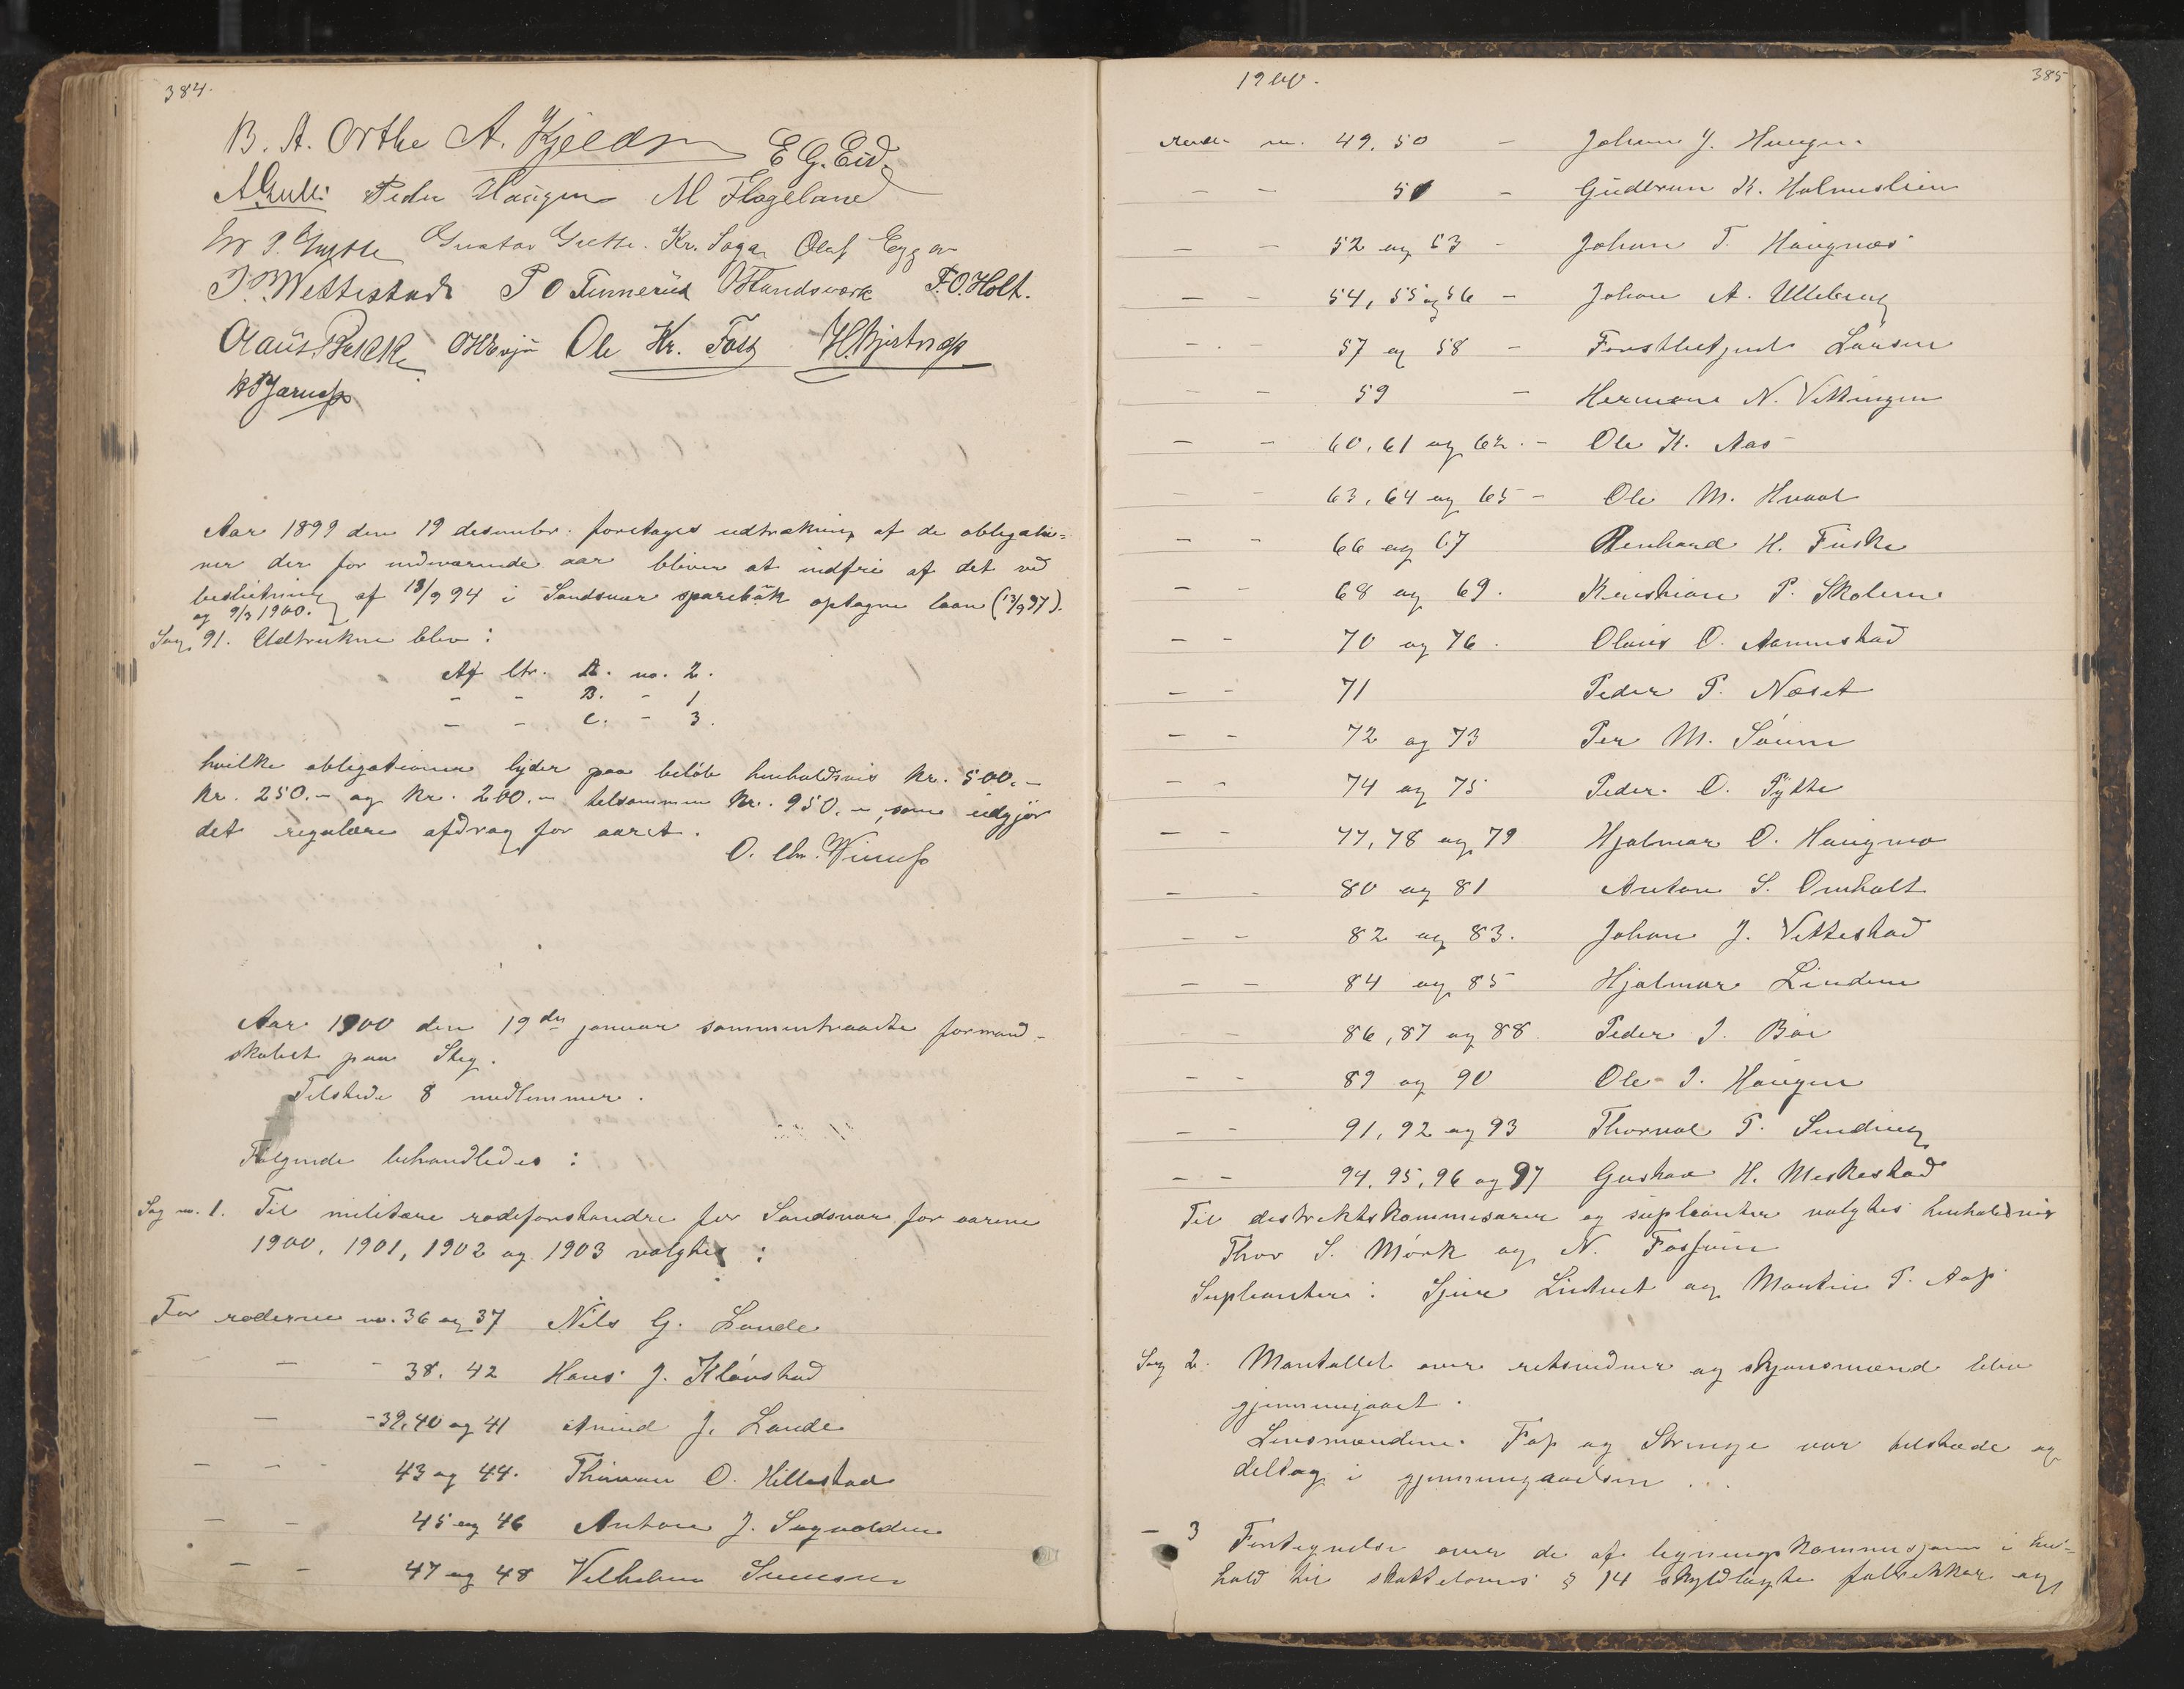 384.
B. A. Orthe A. Kjeldsen E G. Eid.
A Gulli Peder Haugen M Flageland
Gustav Grette. Kr. Saga Olaf Egga
Wettestad P O Tinnerud Handsværk F.O. Holt.
Claus Bakke O H Evju Ole Kr. Foss H. Bjertnæs
Aar 1899 den 19 desember foretages udtrækning af de obligatio-
ner der for indeværende aar bliver at indfri af det ved
beslutning af 18/9 94 i Sandsvær sparebank optagne laan (13/9 97).
og 9/3 1900.
Sag 91. Udtrukne blev :
Af ltr. A. no. 2.
- - B. - 1
- - C. - 3.
hvilke obligationer lyder paa beløb henholdsvis kr. 500.-
kr. 250.- og kr. 200.- tilsammen kr. 950.-, som udgjør
det regulære afdrag for aaret.
O. Chr.
Aar 1900 den 19de januar sammentraadte formand-
skabet paa Steg.
Tilstede 8 medlemmer.
Følgende behandledes :
Sag no. 1. Til militære rodeforstandre for Sandsvær for aarene
1900, 1901, 1902 og 1903 valgtes :
For roderne no. 36 og 37 Nils G. Lande
- - 38. 42 Hans J. Kløvstad
- - 39, 40 og 41 Amund J. Lande
- - - 43 og 44. O. Hillestad
- - 45 og 46 Anton J. Sagvolden
- - 47 og 48 Vilhelm Simensen
1900.
385
Rode no. 49. 50 - Johan J. Haugen
- - 51 - Gudbrun K. Holmeslien
- - 52 og 53 - Johan T. Haugnæs
- - 54, 55 og 56 - Johan A. Ulleberg
- - 57 og 58 - Forstbetjent Larsen
- - 59 - Hermann N. Vittingen
- - 60, 61 og 62. - Ole H. Aas
- - 63, 64 og 65 - Ole M. Hvaal
- - 66 og 67 Renhard H. Fiske
- - 68 og 69. Kristian P. Skolem
- - 70 og 76. Olaus O. Aamnestad
- - 71 Peder P. Næset
- - 72 og 73 Per M.
- - 74 og 75 Peder O. Pytte
- - 77, 78 og 79 Hjalmar O. Haugmo
- - 80 og 81 Anton S. Omholt
- - 82 og 83. Johan J. Vettestad
- - 84 og 85 Hjalmar Linden
- - 86, 87 og 88. Peder J. Bøe
- - 89 og 90 Ole J. Haugen
- - 91, 92 og 93 Thorval P. Sending
- - 94, 95, 96 og 97 Gustav H. Meskestad
Til destriktskommisærer og suplianter valgtes henholdsvis
Thov S. Mørk og N. Fossum
Suplianter : Sjur og Martin P. Aas
Sag 2. Mantallet over retsvidner og skjønsmænd blev
gjennemgaaet.
Lensmændene Fos og Strenge var tilstæde og
deltog i gjennemgaaelsen . . .
- 3 Fortegnelse over de af ligningskommissjonen i hen-
hold til skattelovens § 14 skyldlagte fossekker og